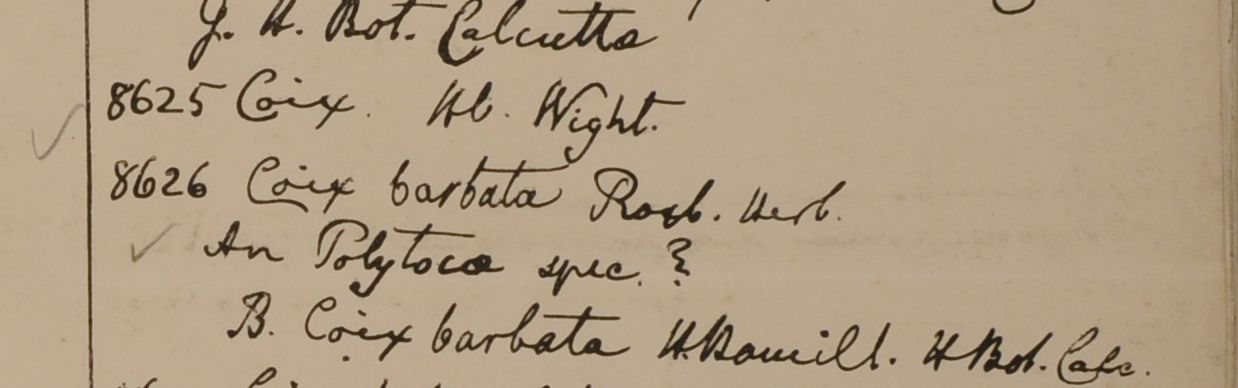 J. H. Bot. Calcutta
8625 Coix. Hb. Wight.
8626 Coix barbata Roxb. Herb.
An Polytoca spec.?
B. Coix barbata H. Hamill. H Bot. Calc.